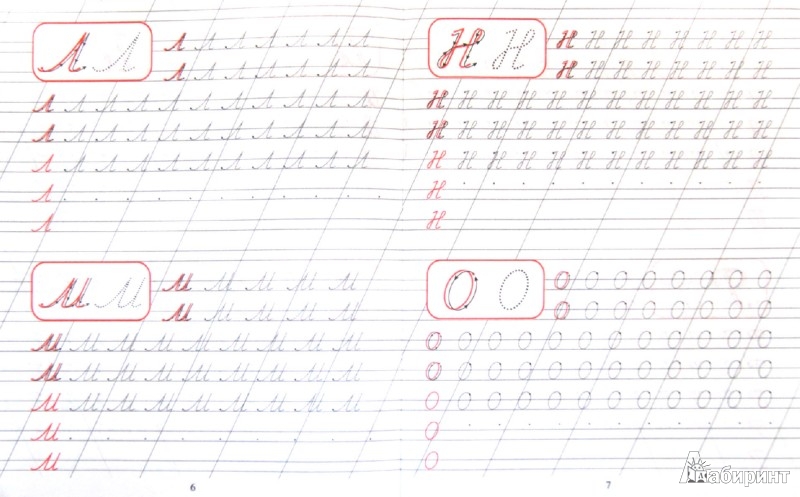 Л Л
Л Л Л Л Л Л Л
Л Л Л Л Л Л Л
Л Л Л Л Л Л Л Л Л Л Л
Л Л Л Л Л Л Л Л Л Л Л
Л Л Л Л Л Л Л Л Л Л Л
Л
Л
М М
М М М М М
М М М М М
М М М М М М М М М
М М М М М М М М М
М М М М М М М М М
М
М
6
Н Н
Н Н Н Н Н Н Н Н
Н Н Н Н Н Н Н Н
Н Н Н Н Н Н Н Н Н Н Н Н
Н Н Н Н Н Н Н Н Н Н Н Н
Н Н Н Н Н Н Н Н Н Н Н Н
Н
Н
О О
О О О О О О О О
О О О О О О О О
О О О О О О О О О О О О
О О О О О О О О О О О О
О О О О О О О О О О О О
О
О
7
Лабиринт